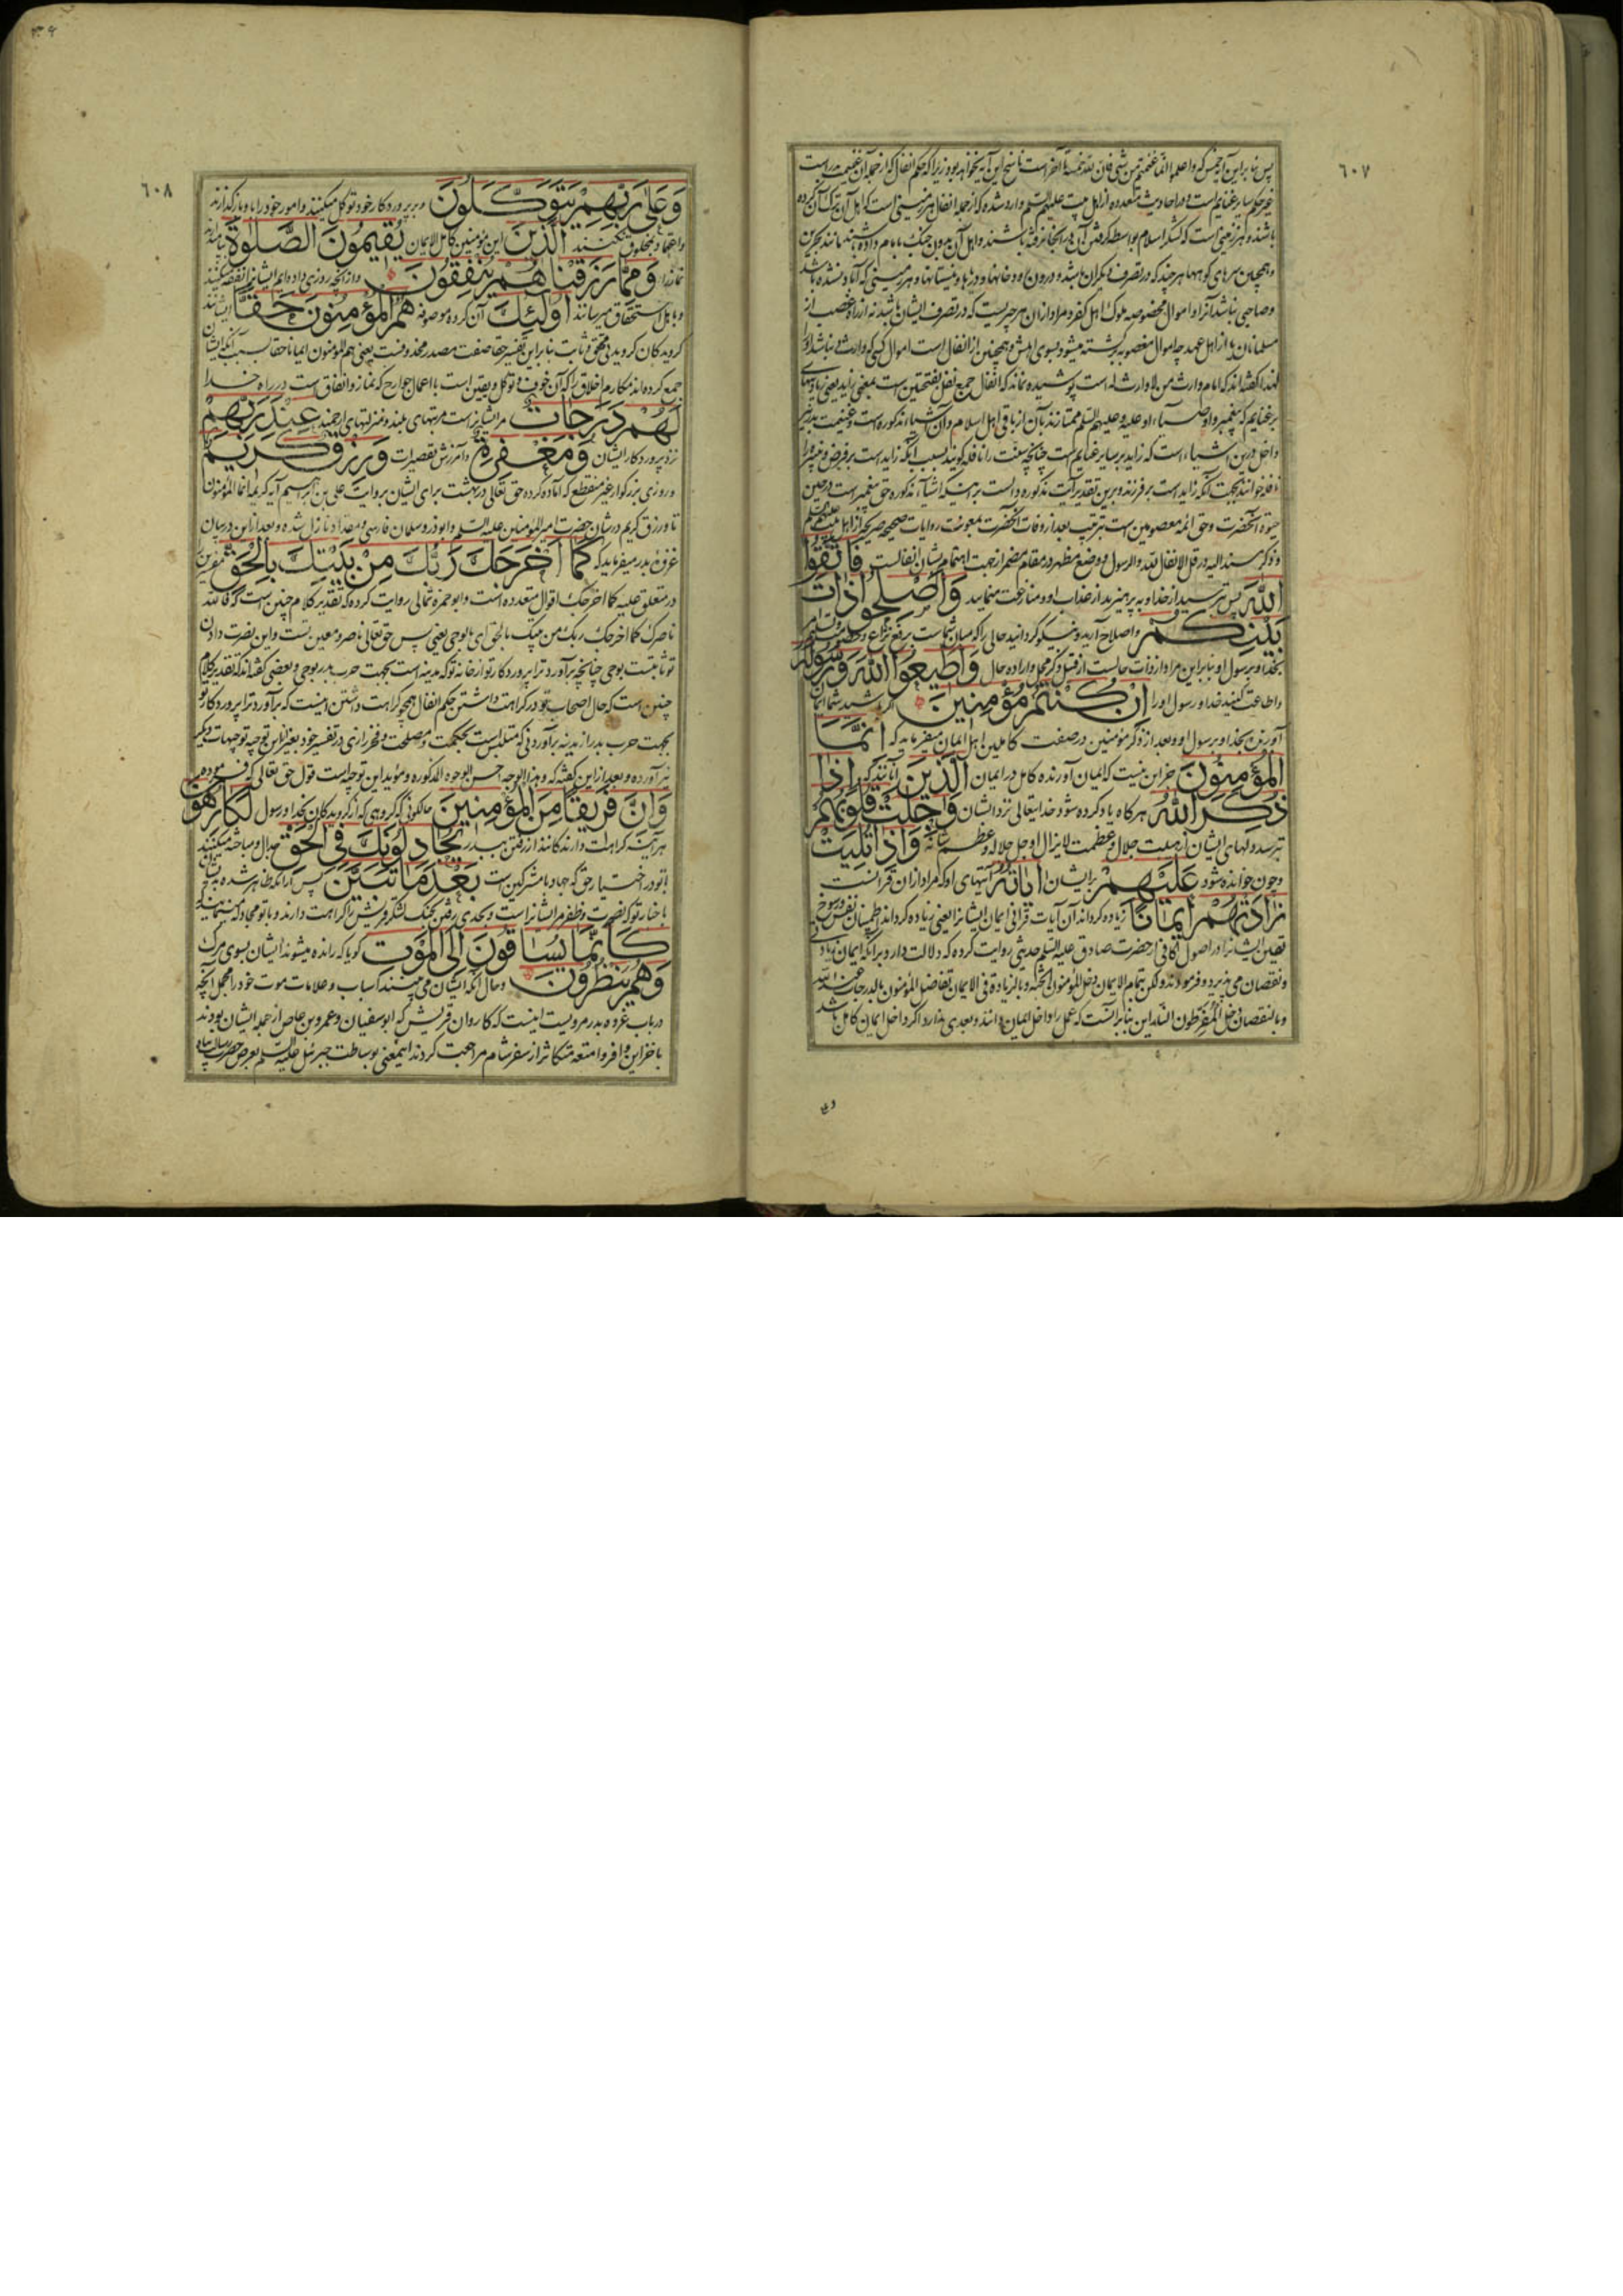 ٦٠٧
پس بنا براین آیه خمس که واعلموا انما غنمتم من شیء فان لله خمسه تا آخر است ناسخ این آیه نخواهد بود زیرا که حکم انفال که از جمله آن غنیمت
غیر حکم سایر غنایم است و در احادیث متعدده از اهل بیت علیهم السلم وارد شده که از جمله انفال هر زمینی است که اهل آن ترک آن کرده
باشند و هر زمینی است که لشکر اسلام بواسطه گرفتن آن در آنجا نرفته باشند و اهل آن بدون جنگ بامام داده باشند مانند بحرین
و همچنین سرهای کوهها هر چند که در تصرف دیگران باشد و درون رودخانها و دره‌ها و نیستانها و هر زمینی که آباد نشده باشد
و صاحبی نباشد آنرا و اموال مخصوصه ملوک اهل کفر و مراد از آن هر چیزیست که در تصرف ایشان باشد نه از راه غصب از
مسلمانان یا از اهل عهد چه اموال مغصوبه برگشته میشود بسوی اهلش و همچنین از انفال است اموال کسی که وارث نباشد او را
لهذا گفته‌اند که امام وارث من لا وارث له است پوشیده نماند که انفال جمع نفل بفتحتین است بمعنی زاید یعنی زیادتیهای
بر غنایم که پیغمبر و اوصیاء او علیه و علیهم السلم ممتازند بآن از باقی اهل اسلام و آن اشیاء مذکوره است و غنیمت بدر نیز
داخل درین اشیاء است که زاید بر سایر غنایم است چنانچه سنت را نافله گویند بسبب آنکه زاید است بر فرض و نبیره را
نافله خوانند بجهت آنکه زاید است بر فرزند و برین تقدیر آیت مذکوره دالست بر اینکه اشیاء مذکوره حق پیغمبر است در حین
حیوة آنحضرت و حق ائمه معصومین است بترتیب بعد از وفات آنحضرت بمعونت روایات صحیحه صریحه از اهل بیت علیهم السلم
و ذکر مسند الیه در قل الانفال لله والرسول و وضع مظهر در مقام مضمر از جهت اهتمام بشان انفالست فَاتَّقُوا
اللّٰهَ پس بترسید از خدا و بپرهیزید از عذاب او و منازعت منمایید وَاَصْلِحُوا ذَاتَ
بَیْنِکُمْ و اصلاح آرید و نیکو گردانید حالی را که میان شماست برفع نزاع
بخدا و برسول او بنابراین مراد از ذات حالست از قبیل ذکر محل و اراده حال وَاَطیعُوا اللّٰهَ وَرَسُولَهُ
و اطاعت کنید خدا و رسول او را اِنْ کُنْتُمْ مُؤْمِنینَ اگر باشید شما ایمان
آورنده بخدا و برسول او و بعد از ذکر مؤمنین در صفت کاملین اهل ایمان میفرماید که اِنَّمَا
الْمُؤْمِنُونَ جز این نیست که ایمان آورنده کامل در ایمان الَّذینَ آنانند که اِذَا
ذُکِرَ اللّٰهُ هرگاه یاد کرده شود خدایتعالی نزد ایشان وَجِلَتْ قُلُوبُهُمْ
بترسد دلهای ایشان از هیبت جلال و عظمت لایزال او جل جلاله و عظم شانه وَاِذَا تُلِیَتْ
و چون خوانده شود عَلَیْهِمْ بر ایشان اٰیَاتُهُ آیتهای او که مراد از آن قرآنست
زَادَتْهُمْ ایمَانًا زیاده گرداند آن آیات قرآنی ایمان ایشانرا یعنی زیاده گرداند اطمینان نفس و رسوخ
یقین ایشانرا و در اصول کافی از حضرت صادق علیه السلم حدیثی روایت کرده که دلالت دارد بر آنکه ایمان زیادتی
و نقصان می‌پذیرد و فرموده‌اند ولکن بتمام الایمان دخل المؤمنون الجنة و بالزیادة فی الایمان تفاضل المؤمنون بالدرجات عند الله
و بالنقصان دخل المفرطون النار این بنابر آنست که عمل را داخل ایمان دانند و بعدی ندارد اگر داخل ایمان کامل باشد
وع
٦٠٨
وَعَلٰی رَبِّهِمْ یَتَوَکَّلُونَ و بر پروردگار خود توکل میکنند و امور خود را باو باز گذارند
و اعتماد بمخلوق نکنند الَّذینَ این مؤمنین کامل الایمان یُقیمُونَ الصَّلٰوةَ
نماز را وَمِمَّا رَزَقْنَاهُمْ یُنْفِقُونَ و از آنچه روزی داده‌ایم ایشانرا نفقه میکنند
و باهل استحقاق میرسانند اُولٰئِکَ آن گروه موصوفه هُمُ الْمُؤْمِنُونَ حَقًّا ایشانند
گرویدگان گرویدنی محقق و ثابت بنابراین تفسیر حقا صفت مصدر محذوفست یعنی هم المؤمنون ایمانا حقا بسبب آنکه ایشان
جمع کرده‌اند مکارم اخلاق را که آن خوف و توکل و یقین است با اعمال جوارح که نماز و انفاق است در راه خدا
لَهُمْ دَرَجَاتٌ مر ایشانراست مرتبهای بلند و منزلتهای ارجمند عِنْدَ رَبِّهِمْ
نزد پروردگار ایشان وَمَغْفِرَةٌ و آمرزش تقصیرات وَرِزْقٌ کَریمٌ
و روزی بزرگوار غیر منقطع که آماده کرده حق تعالی در بهشت برای ایشان بروایت علی بن ابراهیم آیه کریمه انما المؤمنون
تا و رزق کریم در شان حضرت امیر المؤمنین علیه السلم و ابوذر و سلمان فارسی و مقداد نازل شده و بعد از این در بیان
غزوه بدر میفرماید که کَمَا اَخْرَجَکَ رَبُّکَ مِنْ بَیْتِکَ بِالْحَقِّ مفسرین را
در متعلق علیه کما اخرجک اقوال متعدده است و ابو حمزه ثمالی روایت کرده که تقدیر کلام چنین است که فالله
ناصرک کما اخرجک ربک من بیتک بالحق ای بالوحی یعنی پس حق تعالی ناصر و معین تست و این نصرت دادن
تو ثابتست بوحی چنانچه برآورد ترا پروردگار تو از خانه تو که مدینه است بجهت حرب بدر بوحی و بعضی گفته‌اند که تقدیر کلام
چنین است که حال اصحاب تو در کراهت داشتن حکم انفال همچو کراهت داشتن اینست که برآورد ترا پروردگار تو
بجهت حرب بدر از مدینه برآوردنی که متلبس است بحکمت و مصلحت و فخر رازی در تفسیر خود بغیر از این توجیه توجیهات دیگر
نیز آورده و بعد از این گفته که و هذا الوجه احسن الوجوه المذکوره و مؤید این توجیه است قول حق تعالی که فرموده
وَاِنَّ فَریقًا مِنَ الْمُؤْمِنینَ حالکونی که گروهی که از گرویدگان بخدا و رسول لَکَارِهُونَ
هر آینه کراهت دارندگانند از رفتن ببدر یُجَادِلُونَکَ فِی الْحَقِّ جدال و مباحثه میکنند
با تو در اختیار حق که جهاد با مشرکین است بَعْدَ مَا تَبَیَّنَ پس از آنکه ظاهر شده
باخبار تو که نصرت و ظفر مر ایشانراست و بحدی رفتن بجنگ لشکر قریش را کراهت دارند و با تو مجادله مینمایند که
کَاَنَّمَا یُسَاقُونَ اِلَی الْمَوْتِ گویا که رانده میشوند ایشان بسوی مرگ
وَهُمْ یَنْظُرُونَ و حال آنکه ایشان می‌بینند اسباب و علامات موت خود را مجمل آنچه
در باب غزوه بدر مرویست اینست که کاروان قریش که ابو سفیان و عمرو بن عاص از جمله ایشان بودند
با خزاین وافر و امتعه متکاثر از سفر شام مراجعت کردند اینمعنی بوساطت جبرئیل علیه السلم بعرض حضرت رسالت پناه